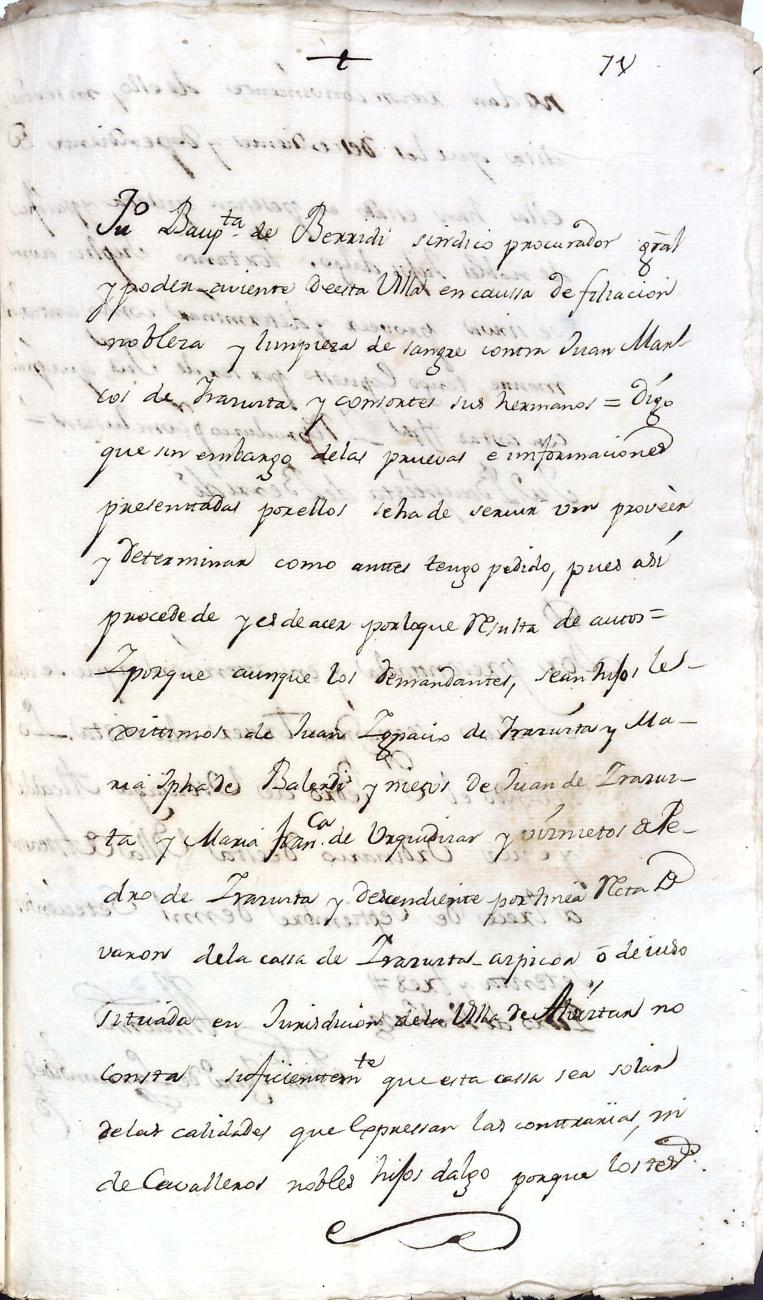 74
Juº Baupta de Berridi sindico procurador gral
y poder aviente deesta Villa en caussa de filiacion
nobleza y limpieza de sangre contra Juan Mar
cos de Irazusta y consortes sus hermanos = digo
que sin embargo delas pruevas e informaciones
presenttadas porellos seha de servir vm proveer
y determinar como anttes tengo pedido, pues asi
procede de y es de acer porloque Resulta de autos =
Yporque aunque los demandantes, sean hijos le-
xittimos de Juan Ygnacio de Irazusta y Ma-
ria Jpha de Balerdi y nietos de Juan de Irazus-
ta y Maria Franca de Urquidizar y visnietos de Pe-
dro de Irazusta y descendiente por linea Recta de
varon dela cassa de Irazusta-azpicoa ó de iuso
situada en Jurisdicion de la Villa de no
consta suficientemte que esta cassa sea solar
delas calidades que Expressan las conttrarias, ni
de Cavalleros nobles hijos dalgo porque los tesº.